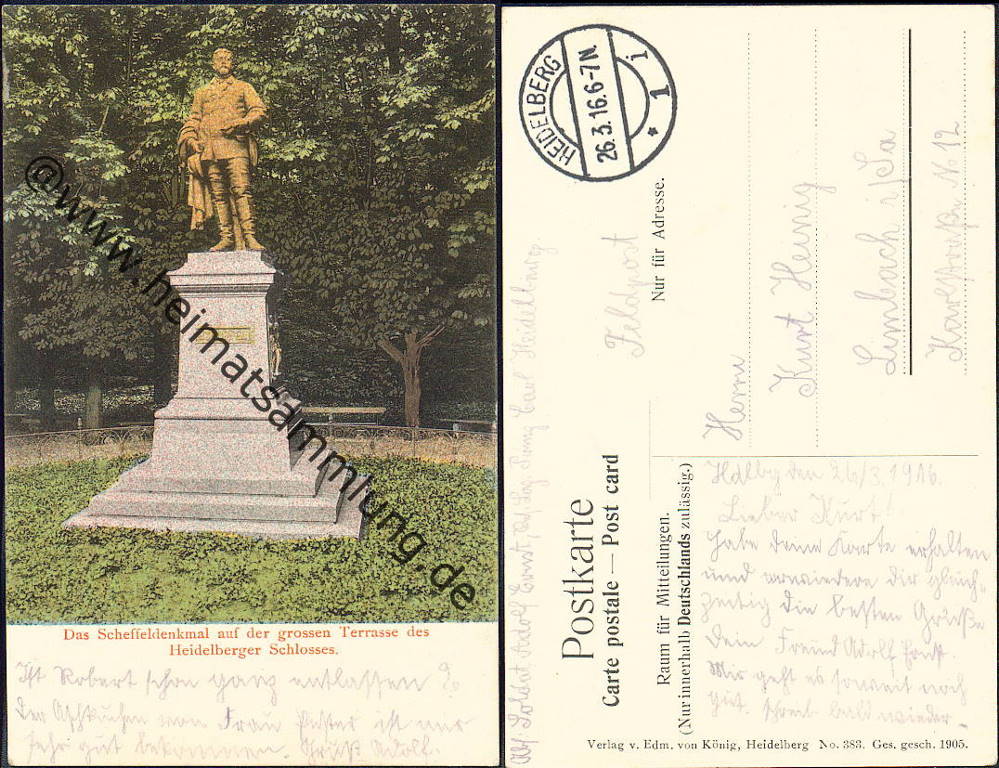 @www.heimatsammlung.de
Das Scheffeldenkmal auf der grossen Terrasse des
Heidelberger Schlosses.
Ist Robert schon ganz entlassen?
Der Aschkuchen von Frau ist mir
sehr gut bekommen. Gruß Adolf.
HEIDELBERG
26.3.16.6-7N.
* 1 i
Postkarte
Carte postale — Post card
Nur für Adresse.
Feldpost
Herrn
Kurt Heinig
Limbach i/Sa
Karlstraße N 12
Raum für Mitteilungen.
(Nur innerhalb Deutschlands zulässig.)
Abs: Soldat Adolf Ernst, Carl Heidelberg
Hdlbg den 26/3. 1916.
Lieber Kurt!
Habe deine Karte erhalten
und erwiedere dir gleich-
zeitig die besten Grüße
Dein Freund Adolf Ernst.
Mir geht es soweit noch
gut. Schreib bald wieder.
Verlag v. Edm. von König, Heidelberg No. 383. Ges. gesch. 1905.